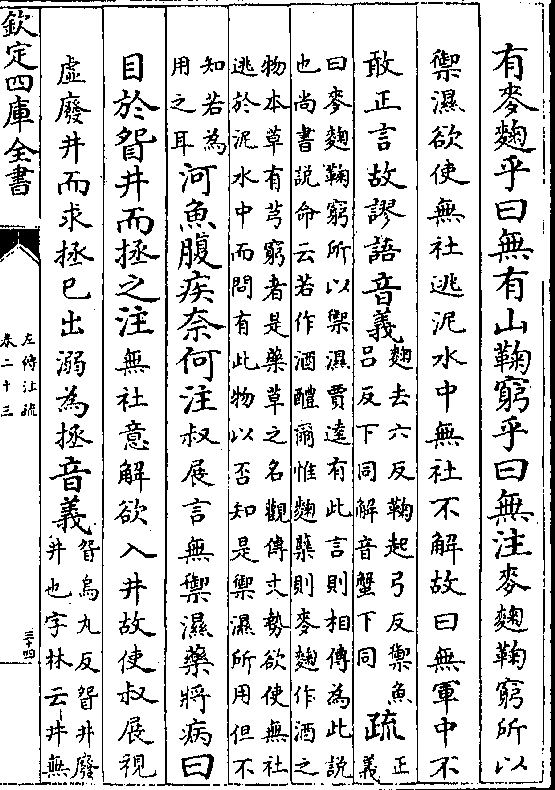 有麥麴乎曰無有山鞠窮乎曰無注麥麴鞠窮所以
禦濕欲使無社逃泥水中無社不解故曰無軍中不
敢正言故謬語音義麴去六反鞠起弓反禦魚
呂反下同解音蟹下同疏正
義
曰麥麴鞠窮所以禦濕賈逵有此言則相傳為此說
也尚書說命云若作酒醴爾惟麴櫱則麥麴作酒之
物本草有芎窮者是藥草之名觀傳文勢欲使無社
逃於泥水中而問有此物以否知是禦濕所用但不
知若為
用之耳河魚腹疾奈何注叔展言無禦濕藥將病曰
目於眢井而拯之注無社意解欲入井故使叔展視
虛廢井而求拯已出溺為拯音義眢烏丸反眢井廢
井也字林云井無
欽定四庫全書
左傳注疏
卷二十三
三十四